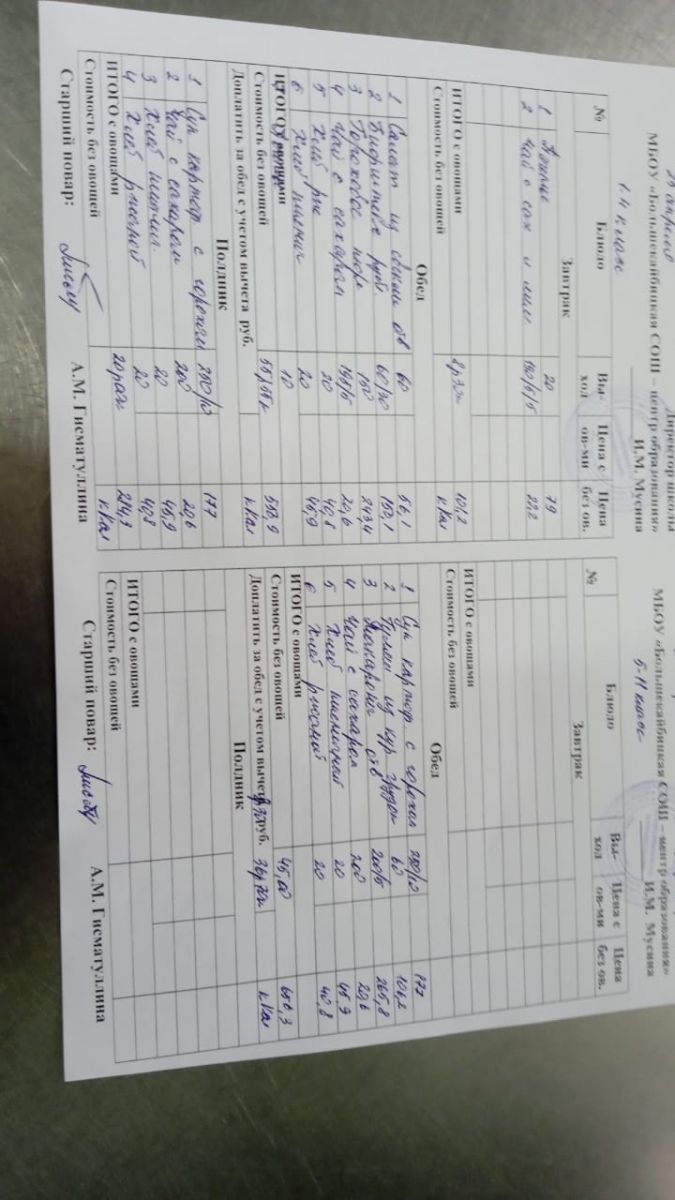 Директор школы
МБОУ «Большекайбицкая СОШ – центр образования»
И.М. Мусина
1-4 класс
№ Блюдо Вы-ход Цена с ов-ми Цена без ов.
Завтрак
1 20 79
2 Чай с сах и мол 150/5/5 22,2
ИТОГО с овощами 8р30к 101,2
Стоимость без овощей кКал
Обед
1 Салат из свеклы отв 60 56,1
2 Бифштекс руб. 60/30 150,1
3 Гороховое пюре 150 243,4
4 Чай с сахаром 195/5 20,6
5 Хлеб рж 20 40,8
6 Хлеб пшенич 20 45,9
ИТОГО с овощами 10
Стоимость без овощей 55р55к 553,9
Доплатить за обед с учетом вычета руб. кКал
Полдник
1 Суп картоф с горохом 250/10 177
2 Чай с сахаром 200 20,6
3 Хлеб пшенич. 20 45,9
4 Хлеб ржаной 20 40,8
ИТОГО с овощами 20р 284,3
Стоимость без овощей кКал
Старший повар: А.М. Гисматуллина
МБОУ «Большекайбицкая СОШ – центр образования»
И.М. Мусина
5-11 класс
№ Блюдо Вы-ход Цена с ов-ми Цена без ов.
Завтрак
ИТОГО с овощами
Стоимость без овощей
Обед
1 Суп картоф с горохом 250/10 177
2 Гуляш из кур грудок 60 104,2
3 Макароны отв 200/5 265,8
4 Чай с сахаром 200 20,6
5 Хлеб пшеничный 20 45,9
6 Хлеб ржаной 20 40,8
ИТОГО с овощами
Стоимость без овощей 45,00 656,3
Доплатить за обед с учетом вычета руб. 36р70к кКал
Полдник
ИТОГО с овощами
Стоимость без овощей
Старший повар: А.М. Гисматуллина